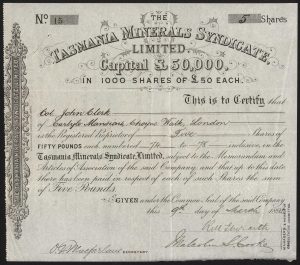 No 15 THE 5 Shares
TASMANIA MINERALS SYNDICATE,
LIMITED.
Capital £50,000,
IN 1000 SHARES OF £50 EACH.
This is to Certify that
Col. John Clerk
of Carlyle Mansions, Cheyne Walk, London
is the Registered Proprietor of Five Shares of
FIFTY POUNDS each numbered 74 to 78 inclusive, in the
Tasmania Minerals Syndicate, Limited, subject to the Memorandum and
Articles of Association of the said Company, and that up to this date
there has been paid in respect of each of such Shares the sum
of Five Pounds.
GIVEN under the Common Seal of the said Company,
this 9th day of March
SECRETARY